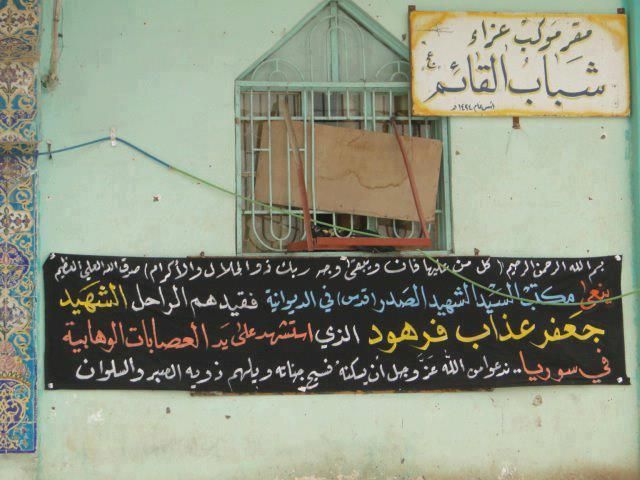 مقر موكب عزاء
شباب القائم عج
بسم الله الرحمن الرحيم (كل من عليها فان ويبقى وجه ربك ذو الجلال والأكرام) صدق الله العلي العظيم
ينعى مكتب السيد الشهيد الصدر (قدس) في الديوانية فقيدهم الراحل الشهيد
جعفر عذاب فرهود الذي استشهد على يد العصابات الوهابية
في سوريا.. ندعوا من الله عز وجل أن يسكنه فسيح جناته ويلهم ذويه الصبر والسلوان